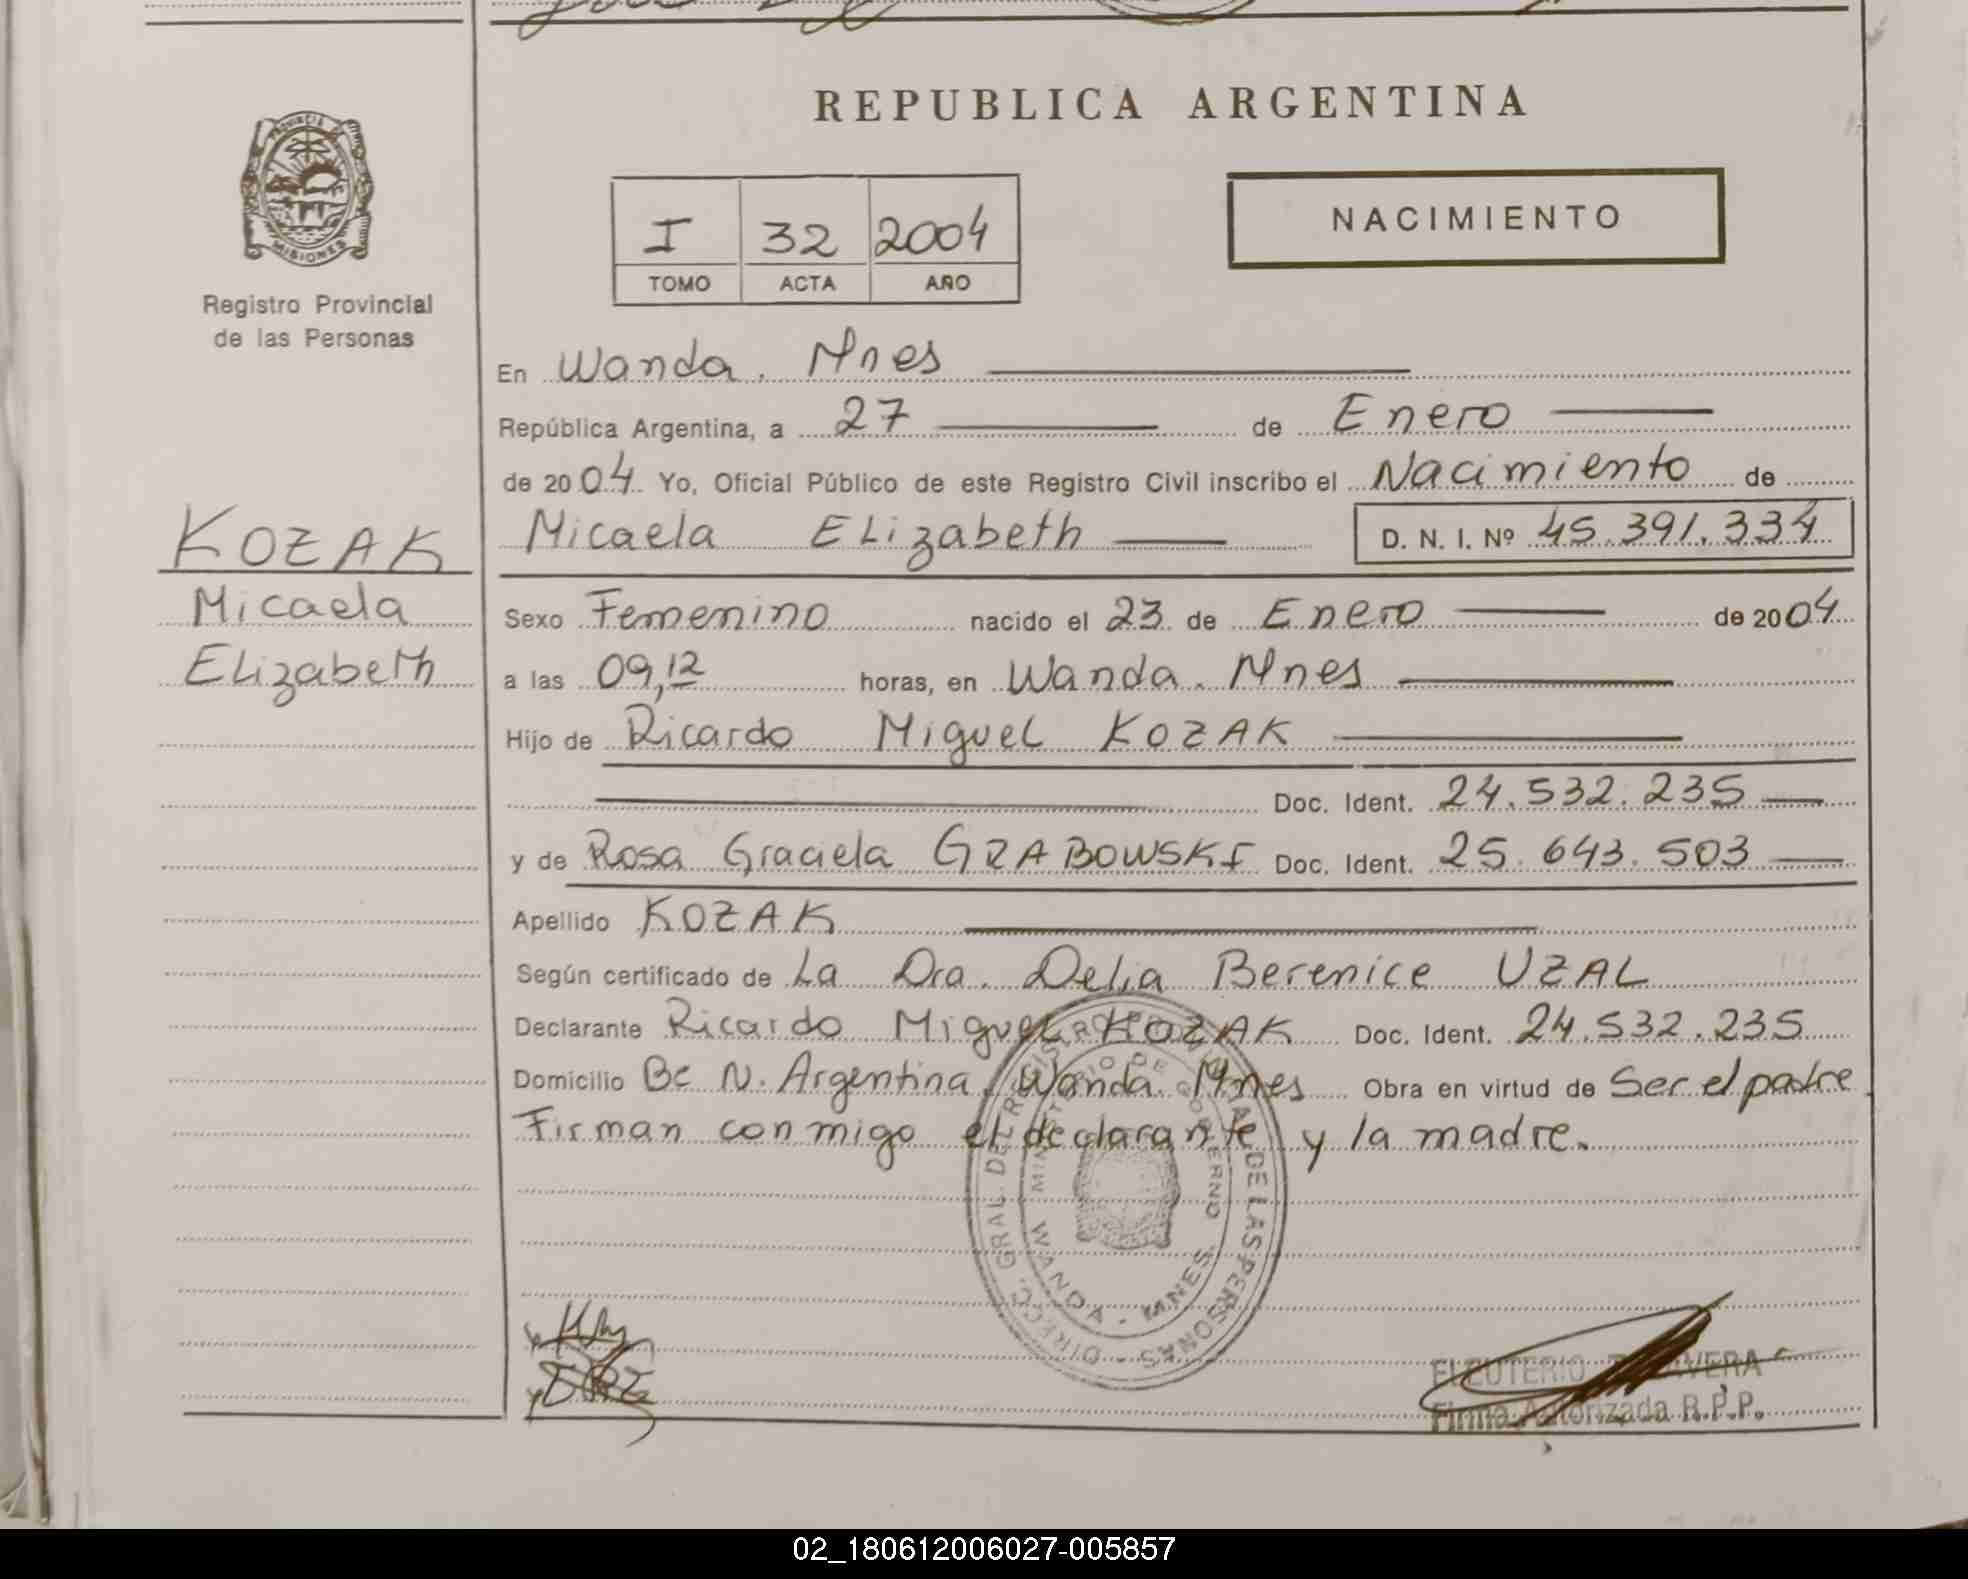 REPUBLICA ARGENTINA
PROVINCIA DE
MISIONES
Registro Provincial
de las Personas
I 32 2004
TOMO ACTA AÑO
NACIMIENTO
En Wanda. Mnes
República Argentina, a 27 de Enero
de 2004. Yo, Oficial Público de este Registro Civil inscribo el Nacimiento de
Micaela Elizabeth D. N. I. Nº 45.391.334
KOZAK
Micaela
Elizabeth
Sexo Femenino nacido el 23 de Enero de 2004
a las 09,12 horas, en Wanda. Mnes
Hijo de Ricardo Miguel KOZAK
Doc. Ident. 24.532.235
y de Rosa Graciela GRABOWSKI Doc. Ident. 25.643.503
Apellido KOZAK
Según certificado de La Dra. Delia Berenice UZAL
Declarante Ricardo Miguel KOZAK Doc. Ident. 24.532.235
Domicilio Bº N. Argentina. Wanda. Mnes Obra en virtud de Ser el padre.
Firman conmigo el declarante y la madre.
DIRECC. GRAL. DEL REGISTRO PROVINCIAL DE LAS PERSONAS -
MINISTERIO DE GOBIERNO
WANDA - MNES.
ELEUTERIO
Firma Autorizada R.P.P.
02_180612006027-005857